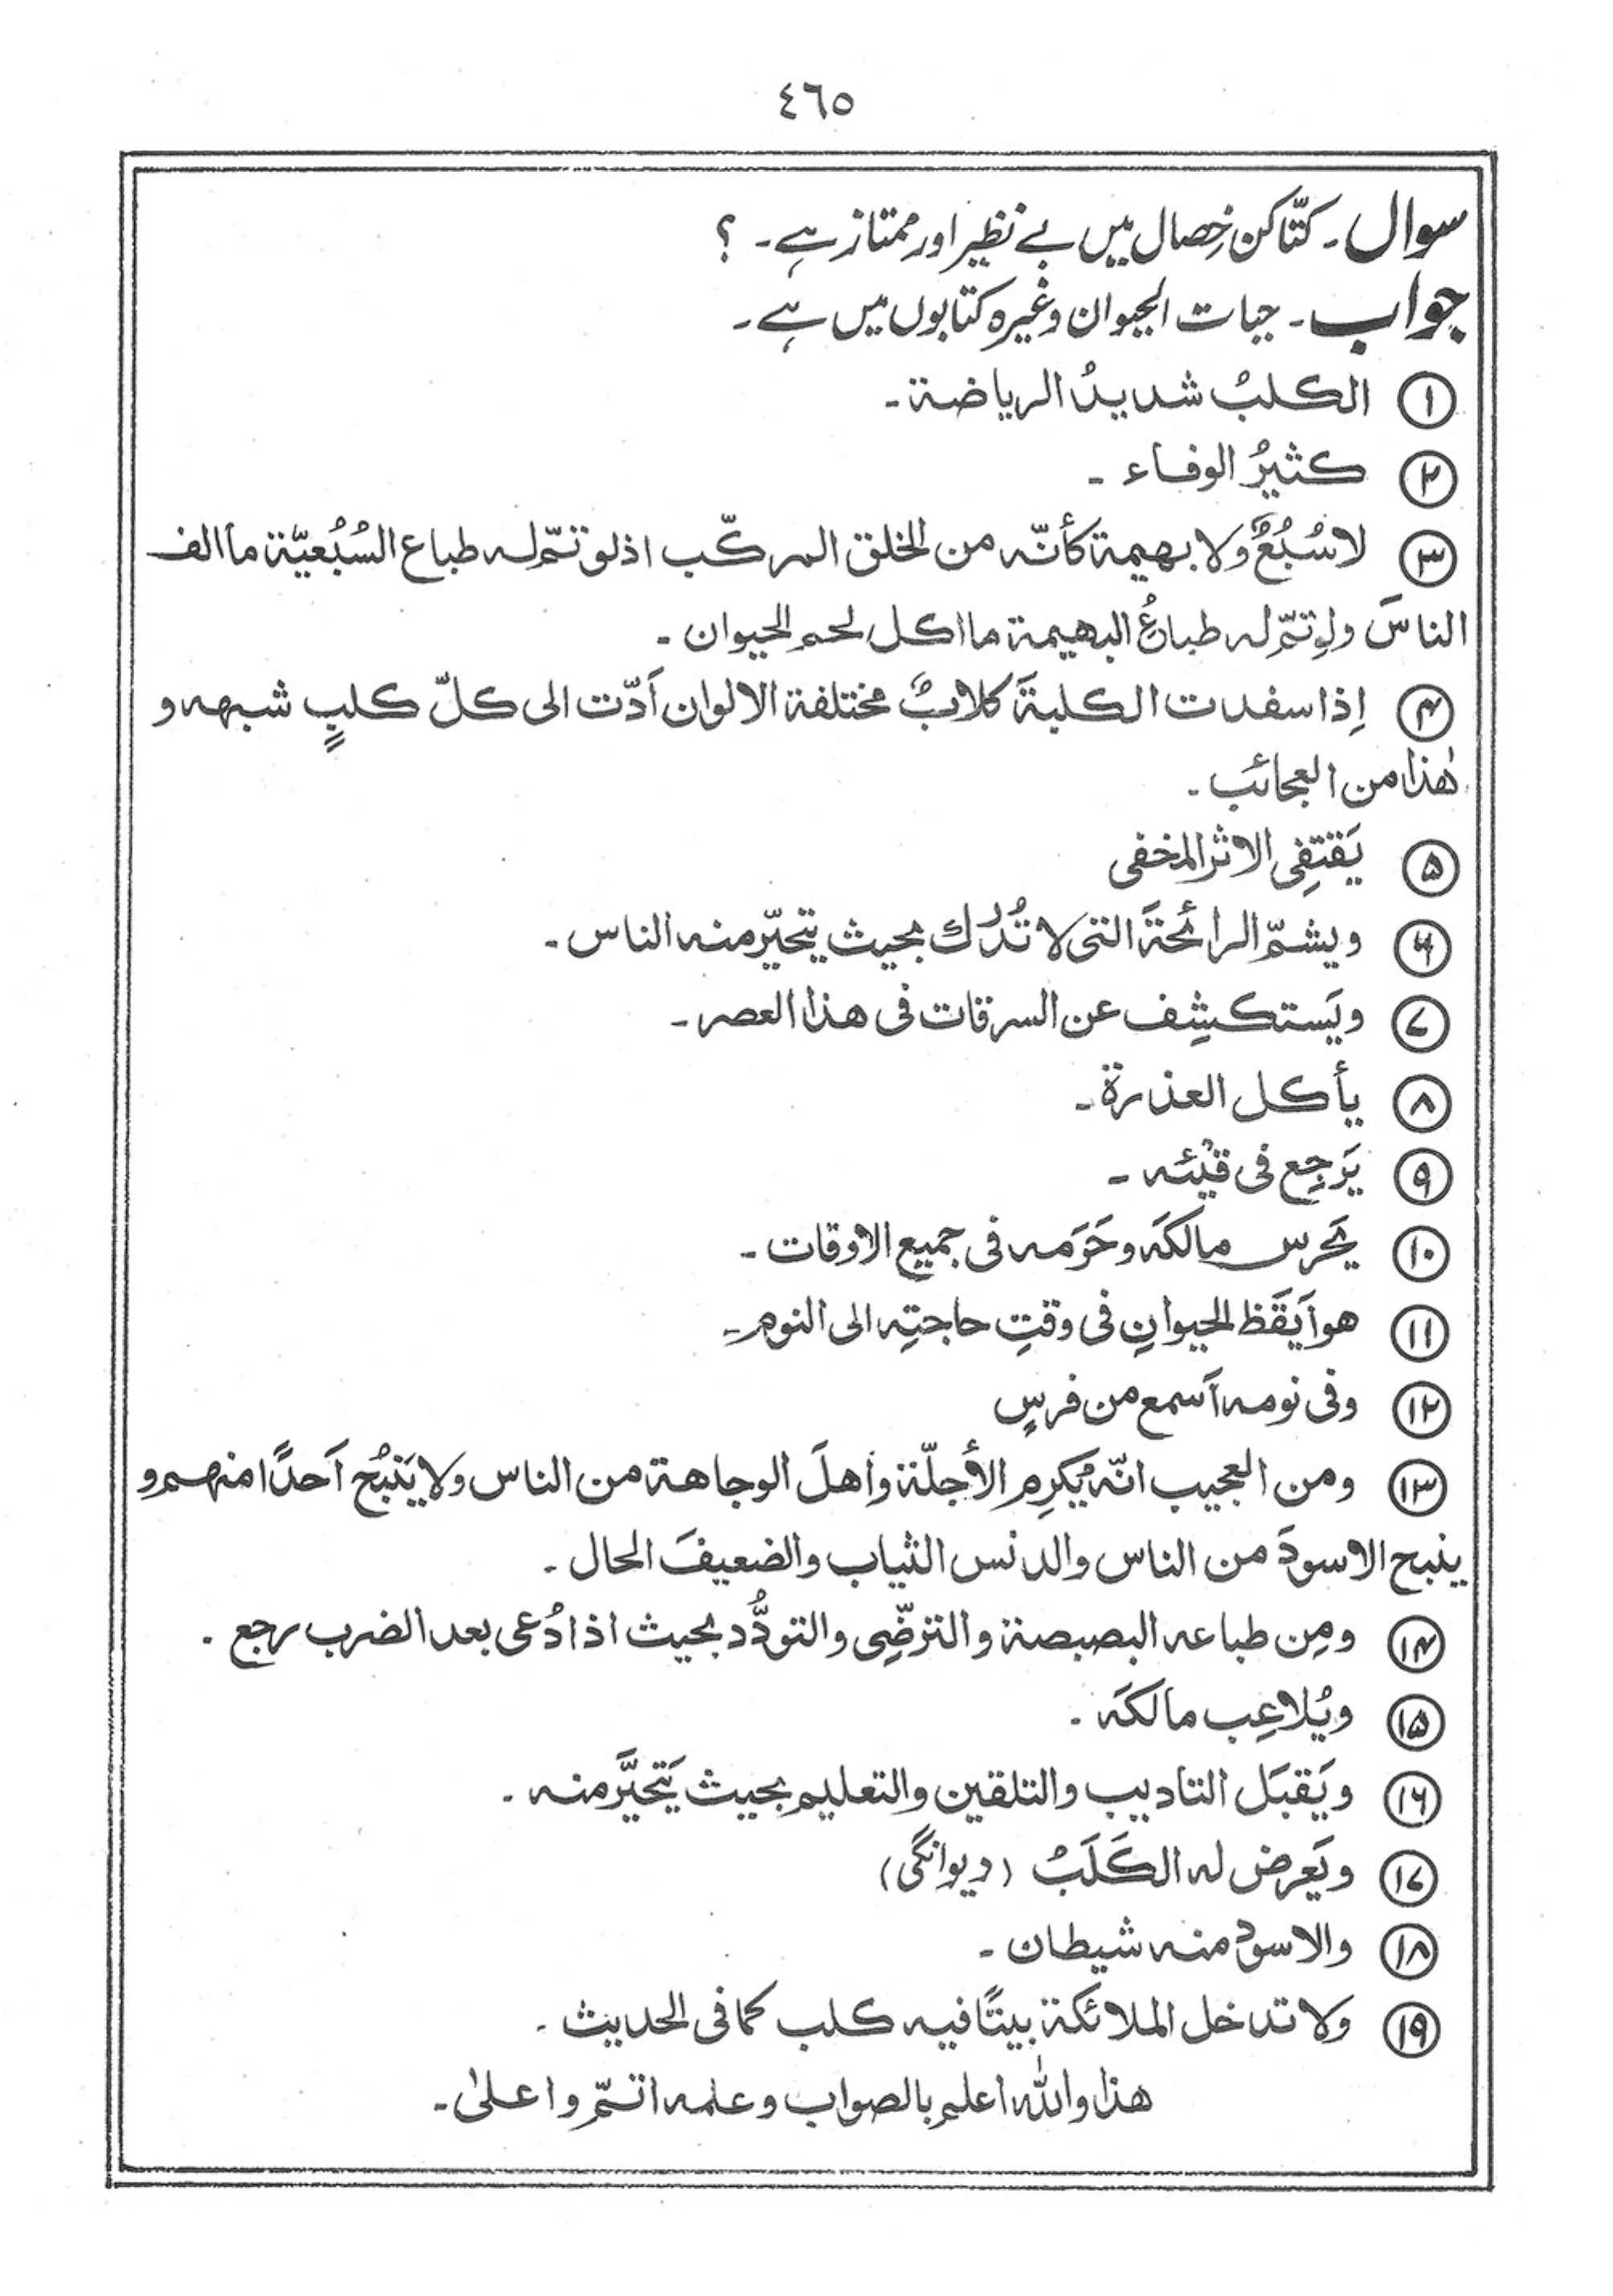 ٤٦٥
سوال۔ کتّا کن خِصال میں بے نظیر اور ممتاز ہے۔ ؟
جواب۔ حیات الحیوان وغیرہ کتابوں میں ہے۔
۱ الکلبُ شدیدُ الریاضة۔
۲ کثیرُ الوفاء ۔
۳ لاسُبُعٌ ولا بهیمة کأنّه من الخلق المرکّب اذ لو تمّ له طباع السُبُعیّة ما الف
الناسَ ولو تمّ له طباعُ البهیمة ما اکل لحم الحیوان ۔
۴ اِذا سفدت الکلبةَ کلابٌ مختلفة الالوان اَدّت الی کلّ کلبٍ شبهه و
هٰذا من العجائب ۔
۵ یَقتفِی الاثر المخفی
۶ ویشمّ الرائحةَ التی لا تُدرَك بحیث یتحیّر منه الناس ۔
۷ ویَستکشِف عن السرقات فی هذا العصر ۔
۸ یأکل العذرة ۔
۹ یَرجِع فی قیْئه ۔
۱۰ یَحرس مالکَه وحَرَمه فی جمیع الاوقات ۔
۱۱ هو اَیقَظ الحیوانِ فی وقتِ حاجتِه الی النوم ۔
۱۲ وفی نومه اَسمع من فرسٍ
۱۳ ومن العجیب انّه یُکرِم الأجلّة وأهلَ الوجاهة من الناس ولا یَنبُح اَحدًا منهم و
ینبح الاسودَ من الناس والدنس الثیاب والضعیفَ الحال ۔
۱۴ ومِن طباعه البصبصة والترضِّی والتودُّد بحیث اذا دُعی بعد الضرب رجع ۔
۱۵ ویُلاعِب مالکَه ۔
۱۶ ویَقبَل التادیب والتلقین والتعلیم بحیث یَتحیَّر منه ۔
۱۷ ویَعرض له الکَلَبُ (دیوانگی)
۱۸ والاسود منه شیطان ۔
۱۹ ولا تدخل الملائکة بیتًا فیه کلب کما فی الحدیث ۔
هذا والله اعلم بالصواب وعلمه اتمّ واعلیٰ ۔